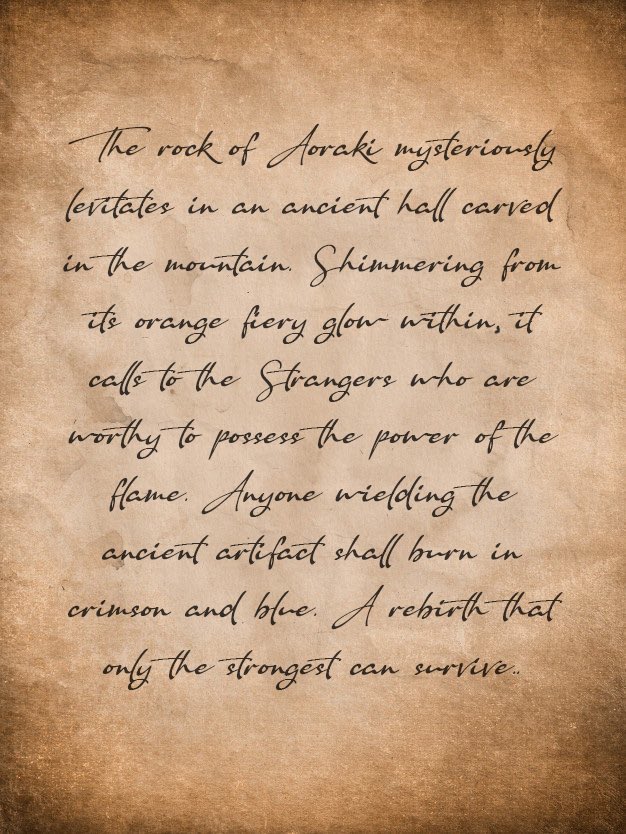 The rock of Aoraki mysteriously
levitates in an ancient hall carved
in the mountain. Shimmering from
its orange fiery glow within, it
calls to the Strangers who are
worthy to possess the power of the
flame. Anyone wielding the
ancient artifact shall burn in
crimson and blue. A rebirth that
only the strongest can survive..